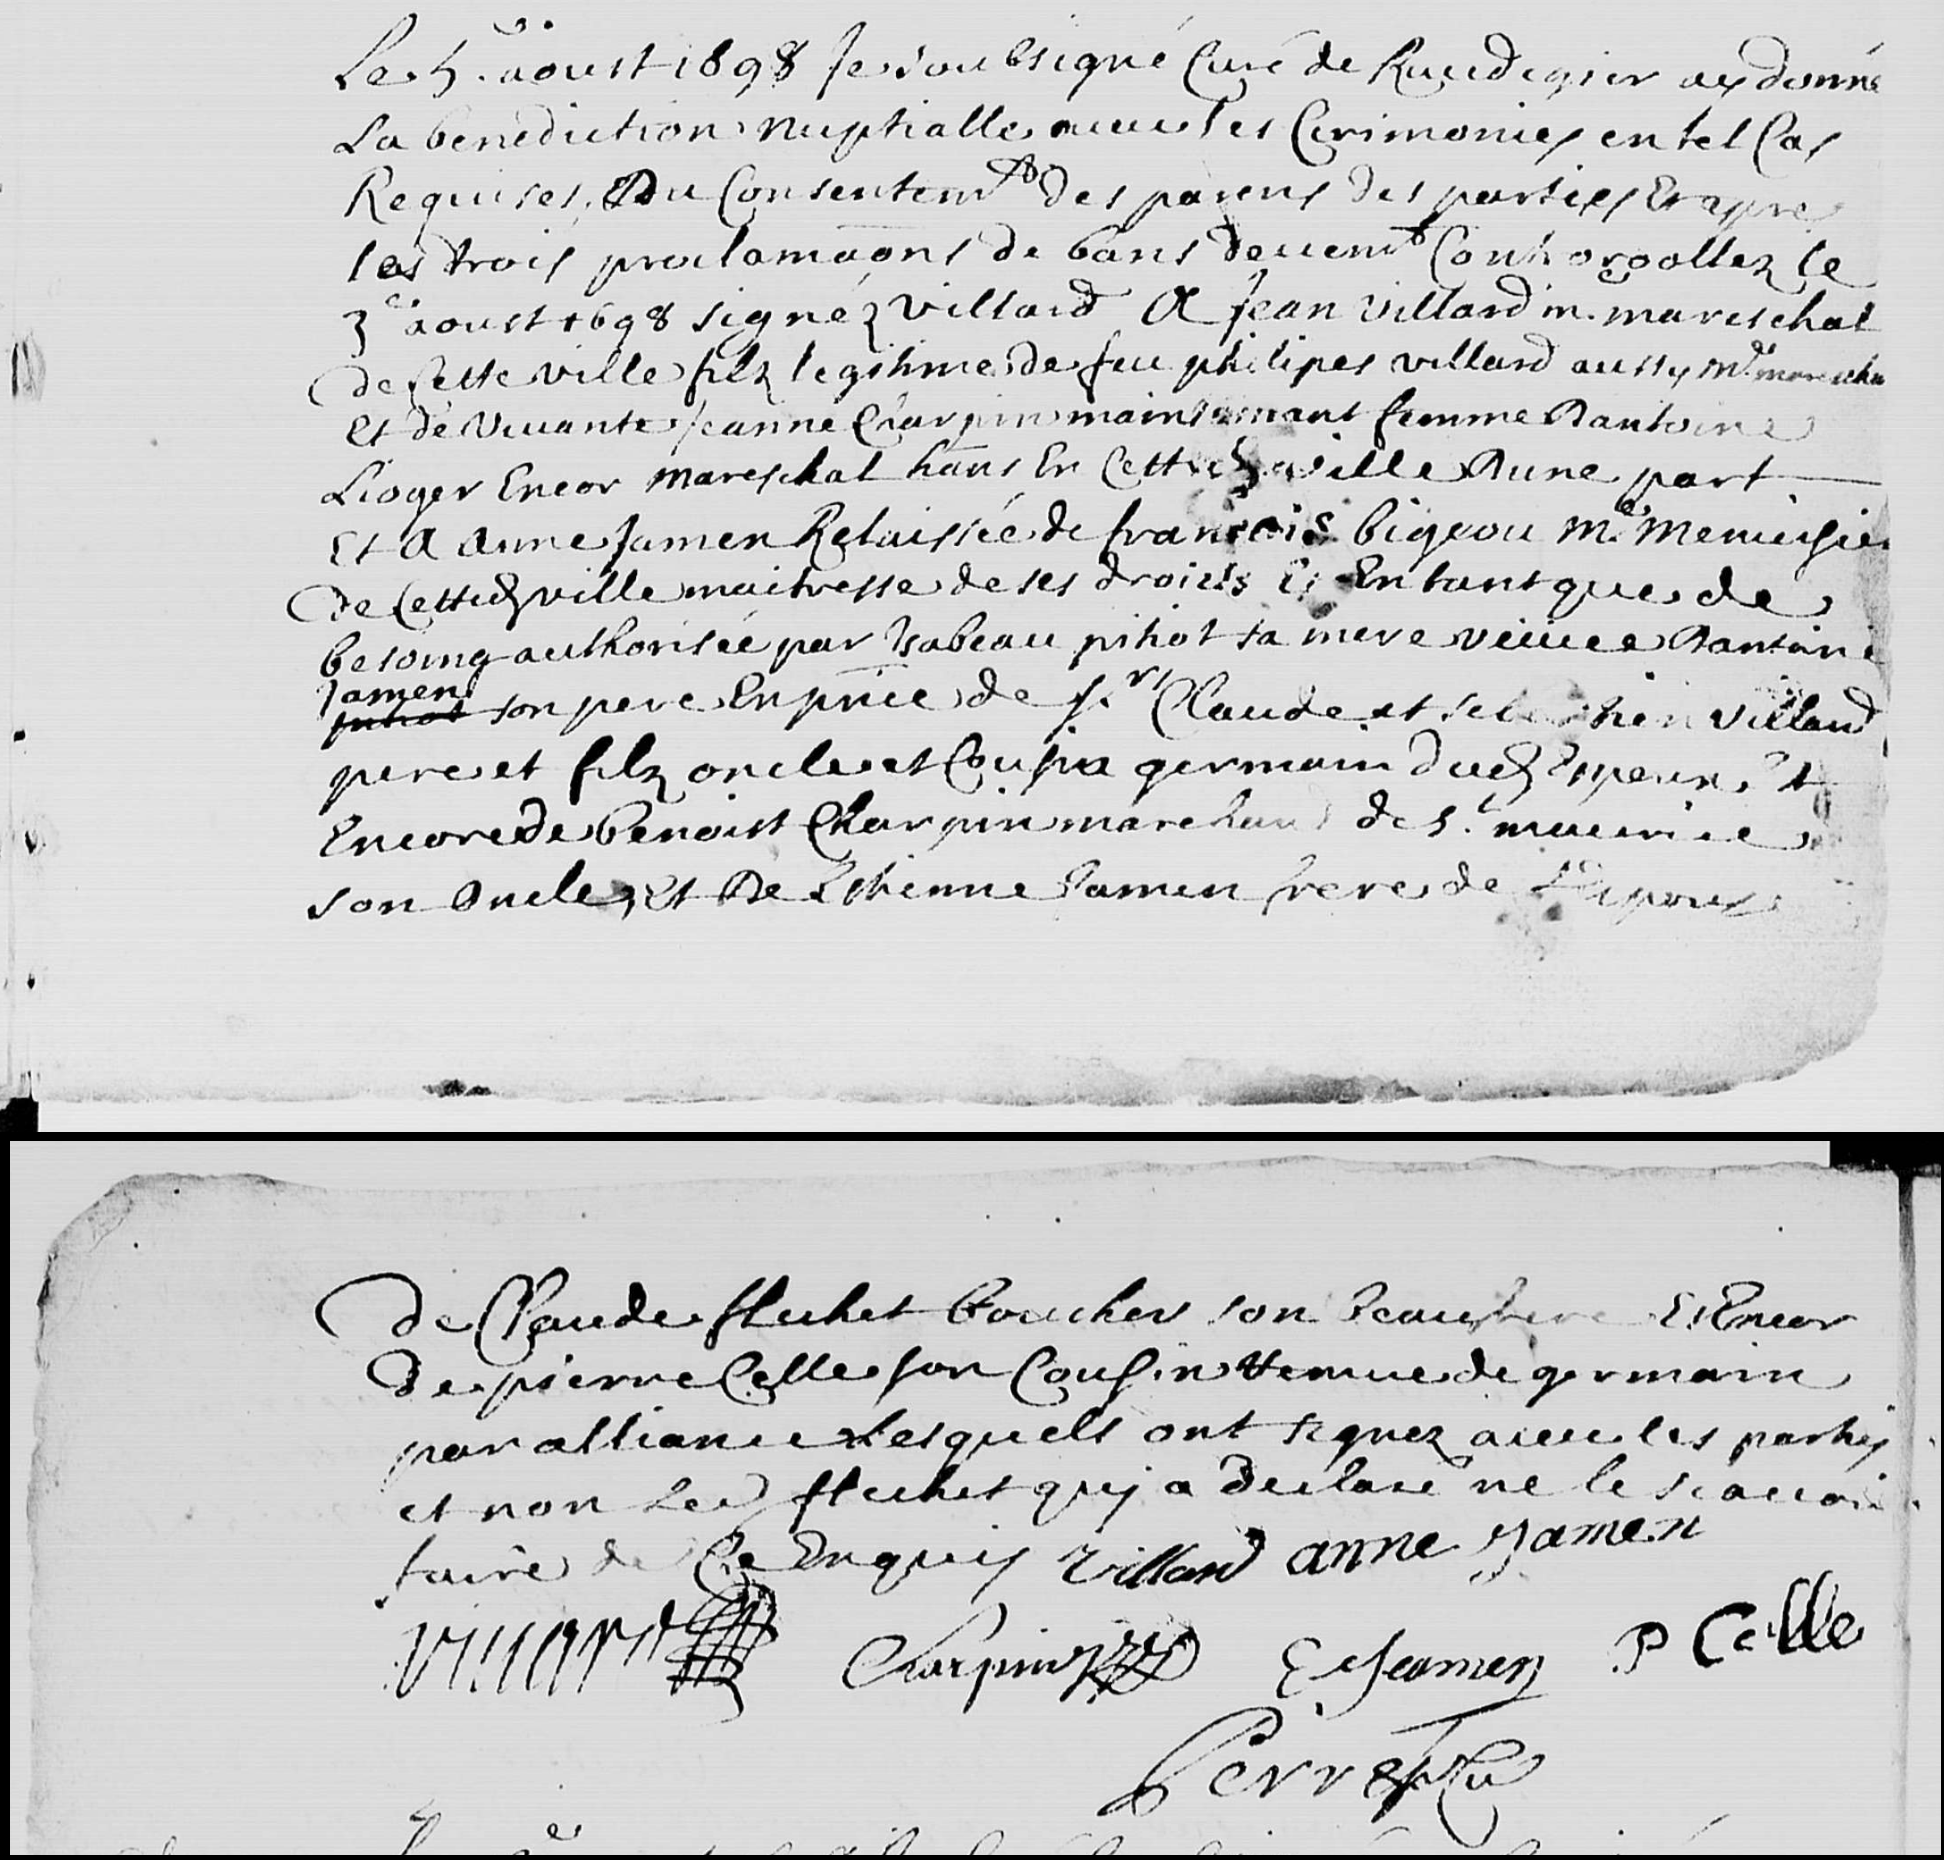 Le 5.e aoust 1698 Je soubsigné Curé de Ruedegier ay donné
La benediction nuptialle avec les Cerimonies en tel Cas
Requises, Du Consentem.t des parens des parties Et apre
les trois proclamaōns de bans deuem.t Controollez le
3.e aoust 1698 signéz Villard A Jean Villard m. mareschal
de Cette ville filz legitime de feu philipes villard aussy m.e mareschal
Et de Vivante Jeanne Charpin maintenant femme Dantoine
Lioger Encor mareschal hāns En Cette d. ville Dune part
Et A Anne Jamen Relaissée de francois bigeou m.e Menuisier
de Cette d. ville maitresse de ses droicts Et En tant que de
besoing authorisée par Isabeau pihot sa mere veuve Dantoine
Jamen son pere En pn̄ce de s.rs Claude et villard
pere et filz oncle et Cousin germain dud. Espoux. Et
Encore de benoist Charpin marchand de s.t maurice
son Oncle, Et De Esthienne Jamen frere de Lepouse
de Claude fluhet boucher son beaufrere Et Encor
de pierre Celle son Cousin Remue de germain
par alliance Lesquels ont signez avec les parties
et non Led. fluhet quj a declaré ne le scavoir
faire de Ce Enquis Villard anne Jamen
Villard Charpin E Jamen P Celle
Perret Cu